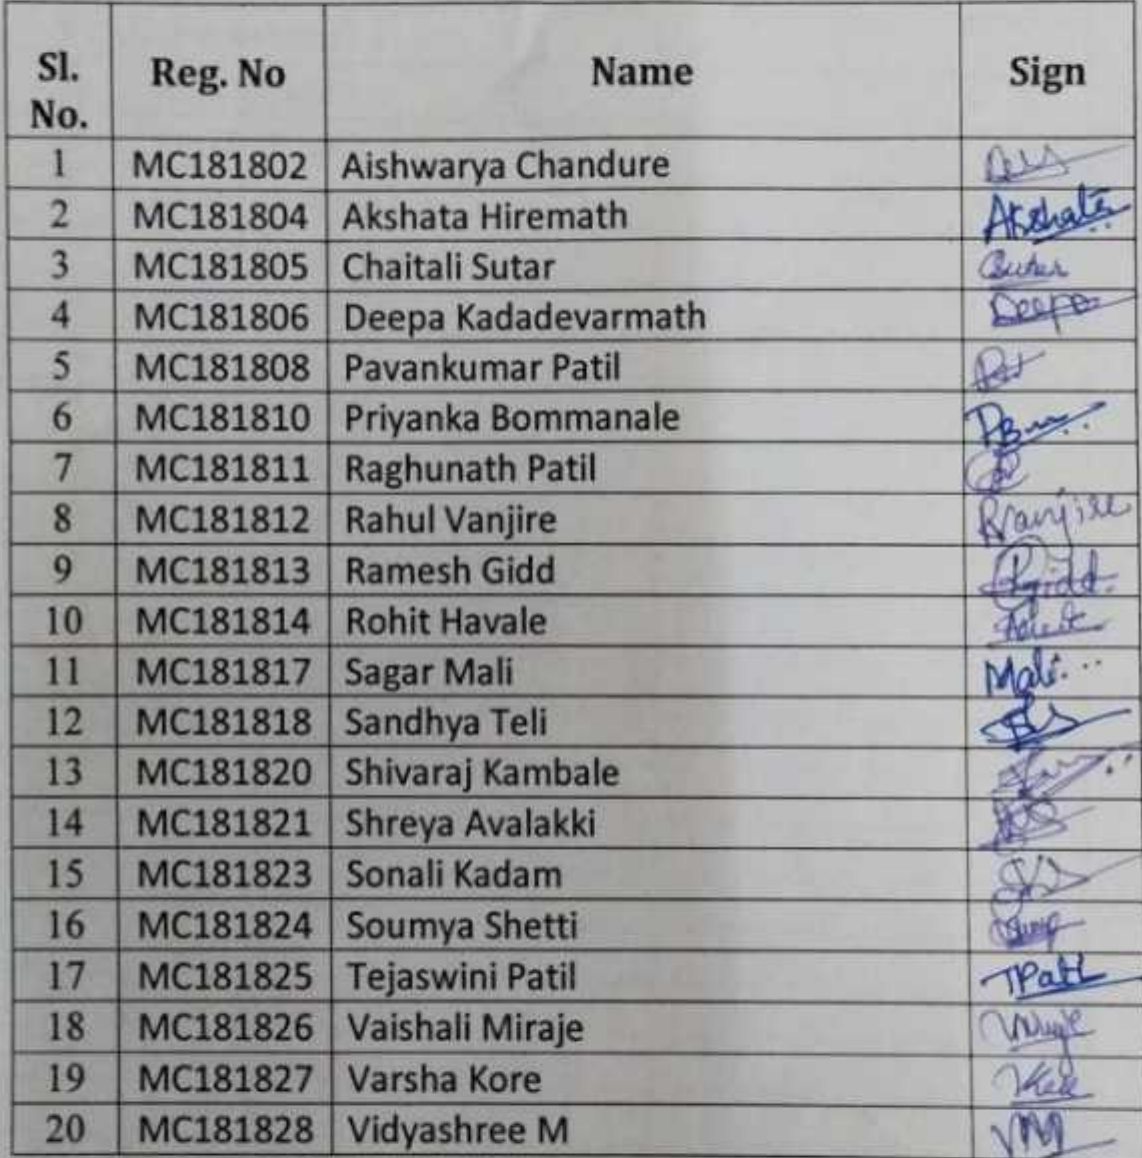 Sl. No. Reg. No Name Sign
1 MC181802 Aishwarya Chandure
2 MC181804 Akshata Hiremath Akshata
3 MC181805 Chaitali Sutar Sutar
4 MC181806 Deepa Kadadevarmath Deepa
5 MC181808 Pavankumar Patil
6 MC181810 Priyanka Bommanale
7 MC181811 Raghunath Patil
8 MC181812 Rahul Vanjire RVanjire
9 MC181813 Ramesh Gidd Rgidd.
10 MC181814 Rohit Havale
11 MC181817 Sagar Mali Mali...
12 MC181818 Sandhya Teli
13 MC181820 Shivaraj Kambale
14 MC181821 Shreya Avalakki
15 MC181823 Sonali Kadam
16 MC181824 Soumya Shetti
17 MC181825 Tejaswini Patil TPatil
18 MC181826 Vaishali Miraje
19 MC181827 Varsha Kore
20 MC181828 Vidyashree M VM